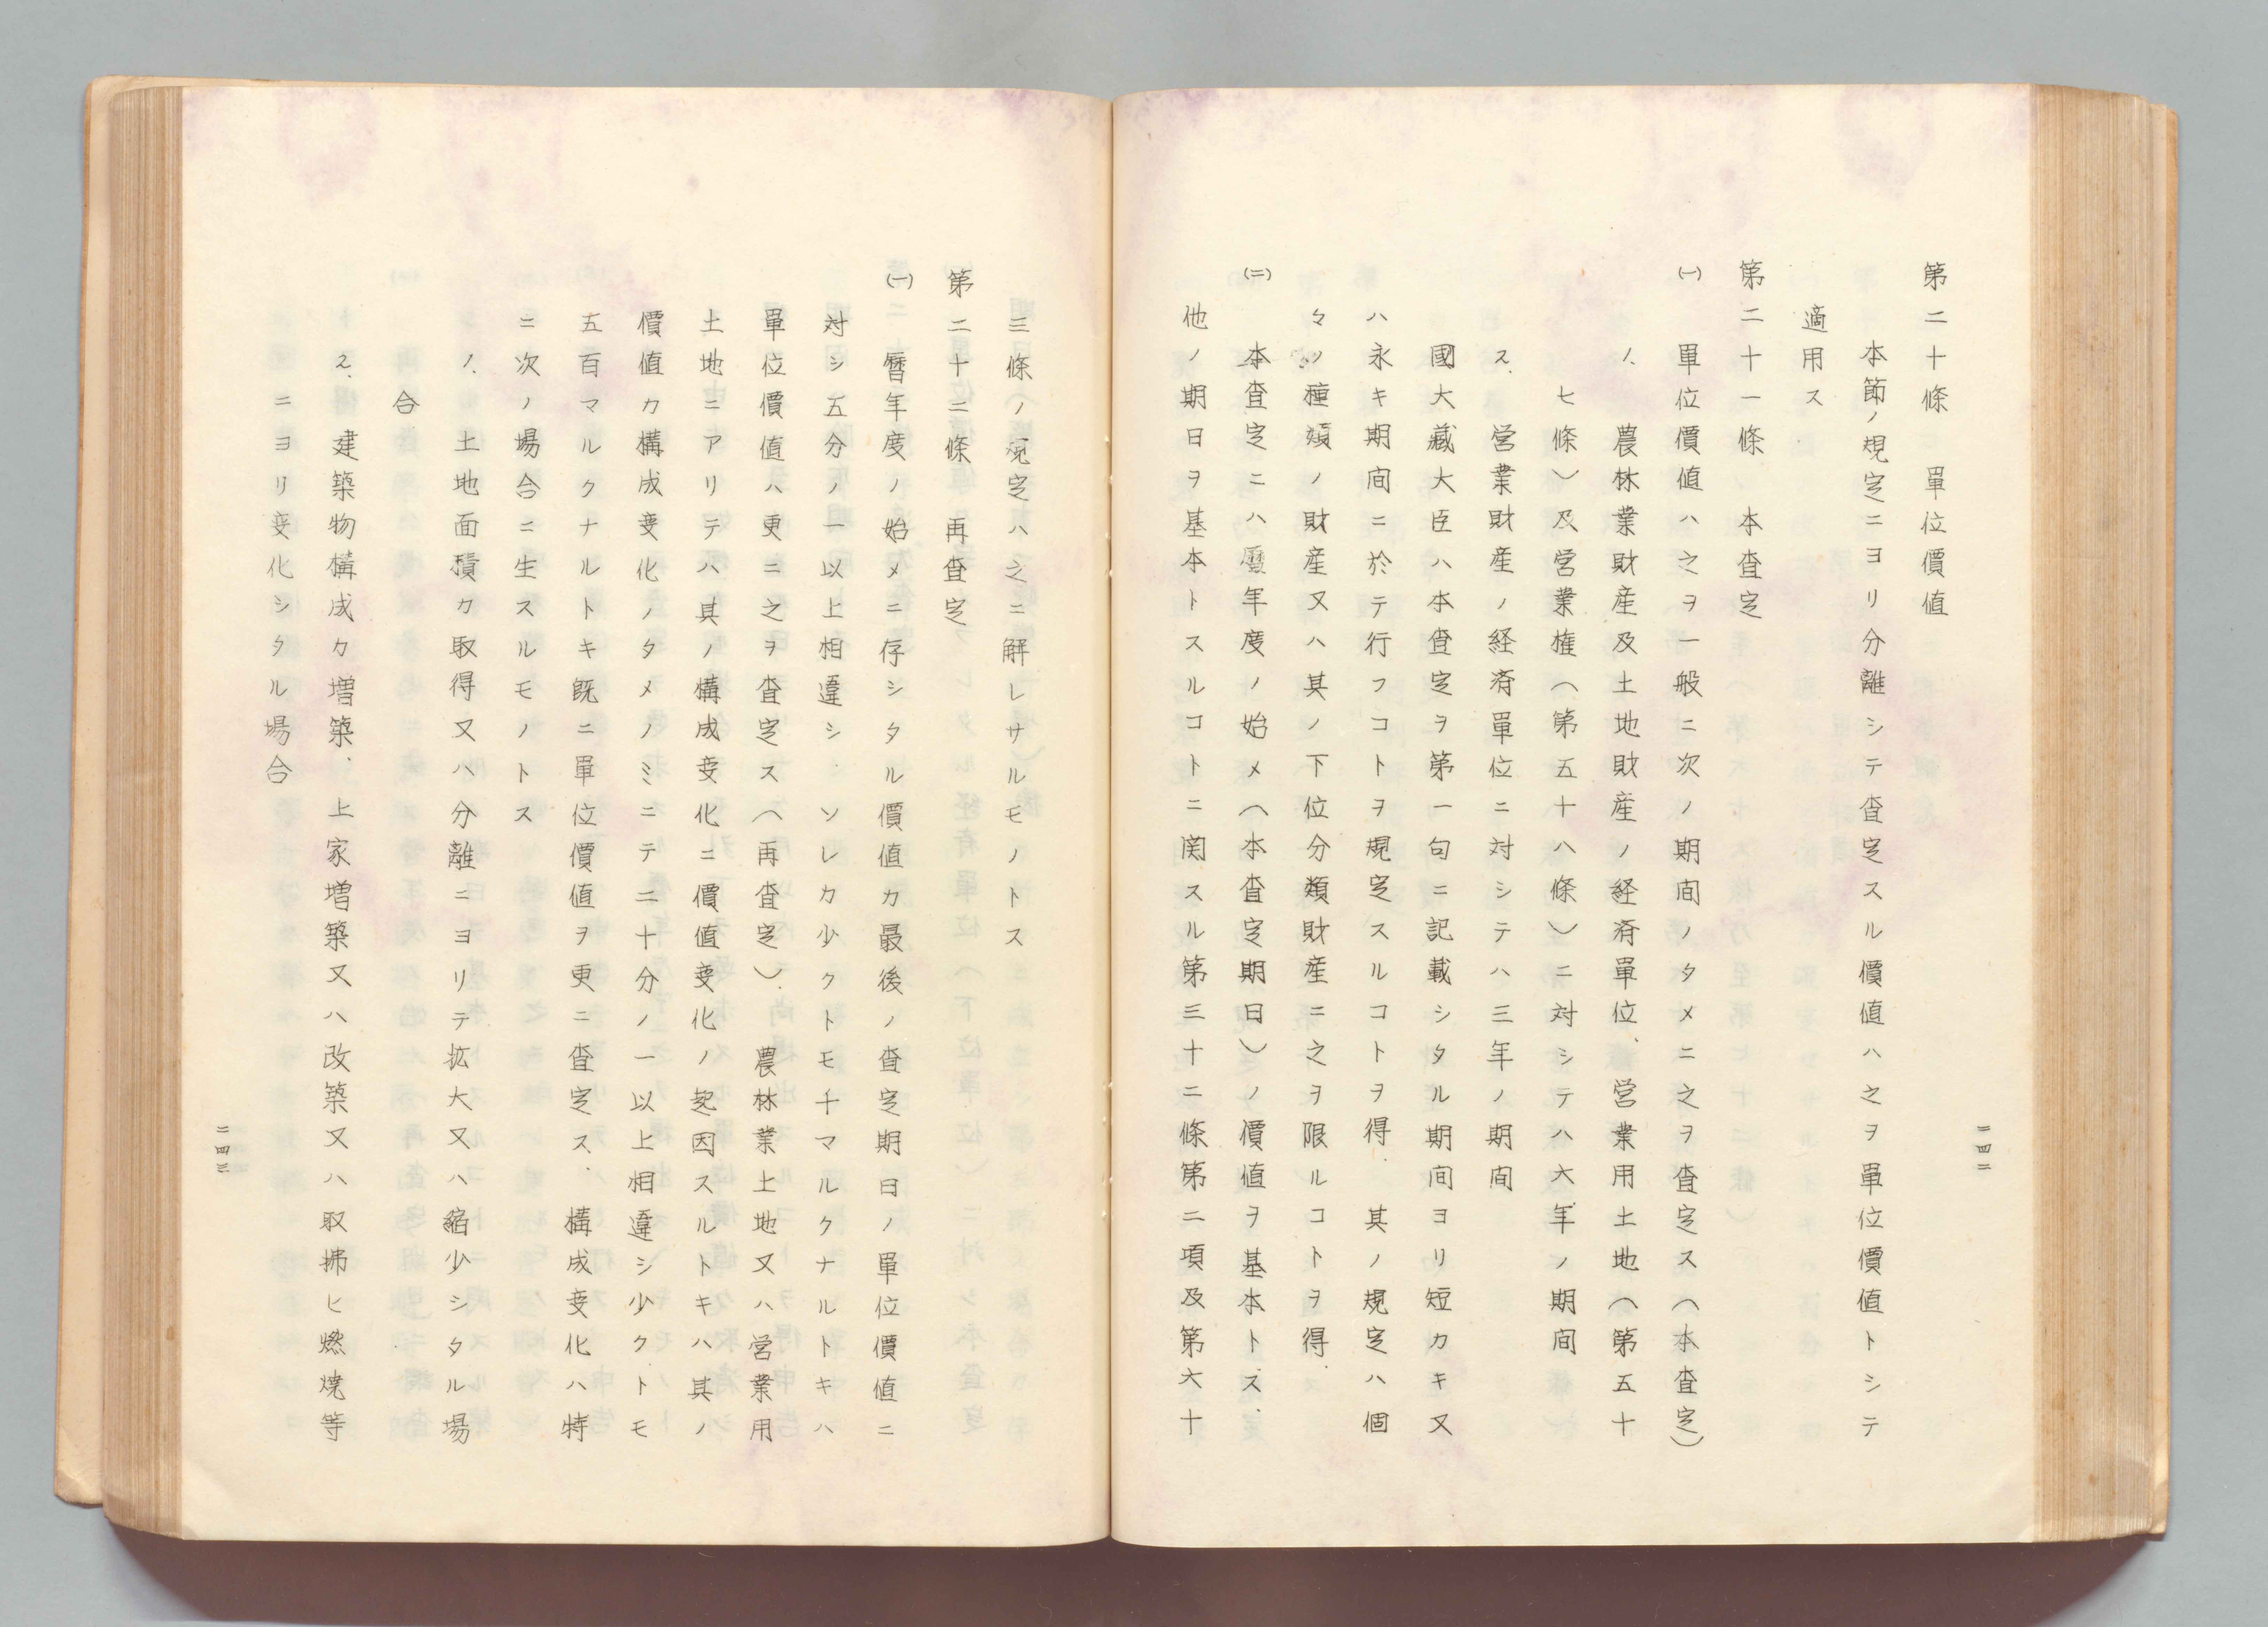 第二十條　單位價値
本節ノ規定ニヨリ分離シテ査定スル價値ハ之ヲ單位價値トシテ
適用ス
第二十一條　本査定
(一)　單位價値ハ之ヲ一般ニ次ノ期間ノタメニ之ヲ査定ス（本査定）
1.　農林業財産及土地財産ノ経済單位、営業用土地（第五十
七條）及営業権（第五十八條）ニ対シテハ六年ノ期間
2.　営業財産ノ経済單位ニ対シテハ三年ノ期間
國大藏大臣ハ本査定ヲ第一句ニ記載シタル期間ヨリ短カキ又
ハ永キ期間ニ於テ行フコトヲ規定スルコトヲ得.　其ノ規定ハ個
々ノ種類ノ財産又ハ其ノ下位分類財産ニ之ヲ限ルコトヲ得.
(二)　本査定ニハ暦年度ノ始メ（本査定期日）ノ價値ヲ基本トス.
他ノ期日ヲ基本トスルコトニ関スル第三十二條第二項及第六十
二四二
三條ノ規定ハ之ニ觧レサルモノトス
第二十二條　再査定
(一)　暦年度ノ始メニ存シタル價値カ最後ノ査定期日ノ單位價値ニ
対シ五分ノ一以上相違シ.　ソレカ少クトモ千マルクナルトキハ
單位價値ハ更ニ之ヲ査定ス（再査定）.　農林業土地又ハ営業用
土地ニアリテハ其ノ構成変化ニ價値変化ノ起因スルトキハ其ノ
價値カ構成変化ノタメノミニテ二十分ノ一以上相違シ少クトモ
五百マルクナルトキ既ニ單位價値ヲ更ニ査定ス.　構成変化ハ特
ニ次ノ場合ニ生スルモノトス
1.　土地面積カ取得又ハ分離ニヨリテ拡大又ハ縮少シタル場
合.
2.　建築物構成カ増築、上家増築又ハ改築又ハ取拂ヒ燃焼等
ニヨリ変化シタル場合
二四三